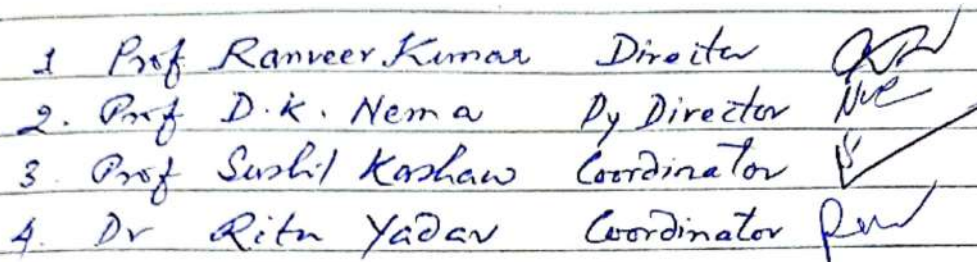 1 Prof Ranveer Kumar Director
2. Prof D.K. Nema Dy Director
3. Prof Sushil Kashaw Coordinator
4. Dr Ritu Yadav Coordinator